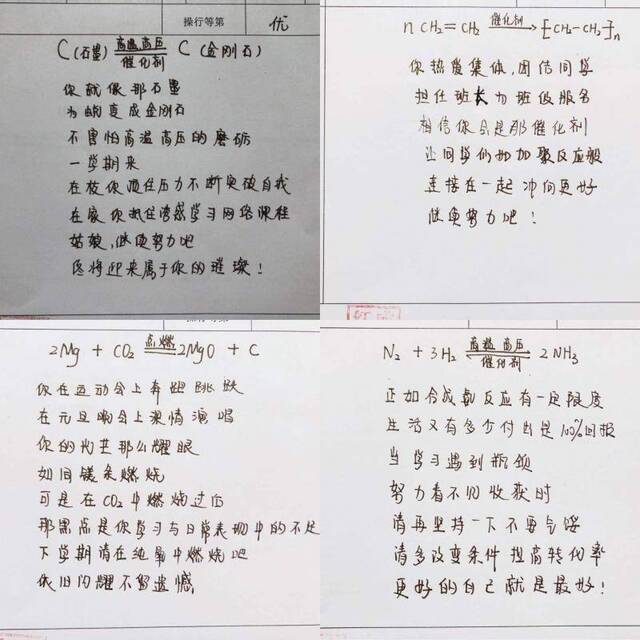 操行等第
优
C(石墨) 高温高压 催化剂 C(金刚石)
你就像那石墨
为蜕变成金刚石
不害怕高温高压的磨砺
一学期来
在校你顶住压力不断突破自我
在家你抵住诱惑学习网络课程
姑娘,继续努力吧
终将迎来属于你的璀璨!
nCH₂=CH₂ 催化剂→ [CH₂-CH₂]n
你热爱集体,团结同学
担任班长为班级服务
相信你会是那催化剂
让同学们如加聚反应般
连接在一起冲向更好
继续努力吧!
操行等第
2Mg + CO₂ 点燃 2MgO + C
你在运动会上奔跑跳跃
在元旦晚会上深情演唱
你的光芒那么耀眼
如同镁条燃烧
可是在CO₂中燃烧过后
那黑点是你学习与日常表现中的不足
下学期请在纯氧中燃烧吧
依旧闪耀不留遗憾
N₂ + 3H₂ 高温高压 催化剂 2NH₃
正如合成氨反应有一定限度
生活又有多少付出是100%回报
当学习遇到瓶颈
努力看不见收获时
请再坚持一下不要气馁
请多改变条件提高转化率
更好的自己就是最好!